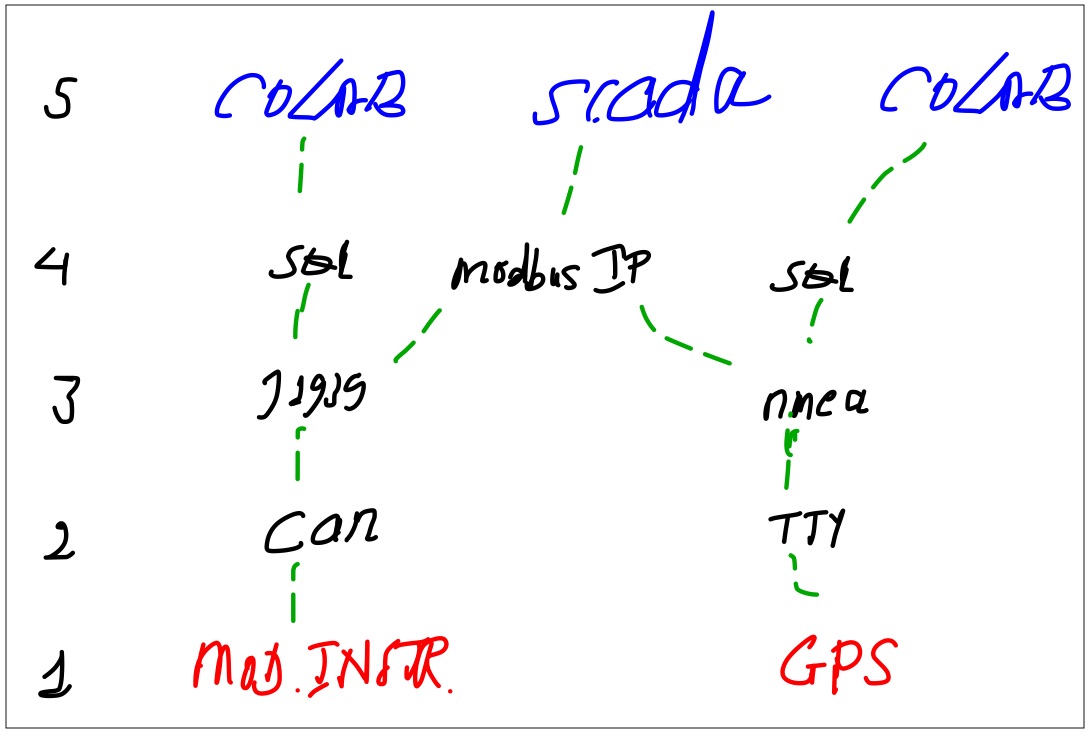 5 COLAB scada COLAB
4 SQL modbus IP SQL
3 J1939 nmea
2 Can TTY
1 MOD. INSTR. GPS